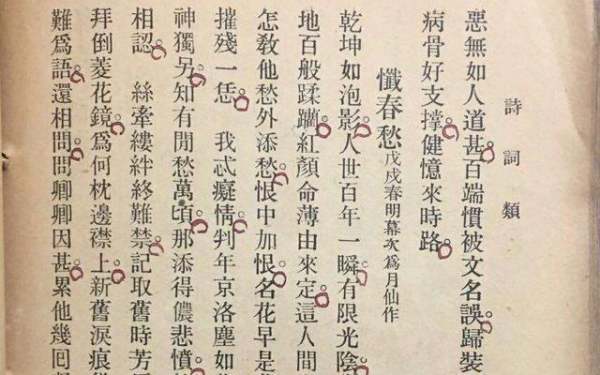 詩詞類
惡無如人道甚。百端慣被文名誤。歸裝
病骨好支撐健憶來時路。
懺春愁 戊戌春明幕次爲月仙作
乾坤如泡影。人世百年一瞬。有限光陰
地百般蹂躪。紅顏命薄由來定。這人間
怎敎他愁外添愁。恨中加恨。名花早是
摧殘一恁。 我忒癡情。判年京洛塵如
神獨另。知有閒愁萬頃。那添得儂悲憤。
相認。 絲牽縷絆終難禁。記取舊時芳
拜倒菱花鏡。爲何枕邊襟上。新舊淚痕
難爲語。還相問。問卿卿因甚。累他幾囘